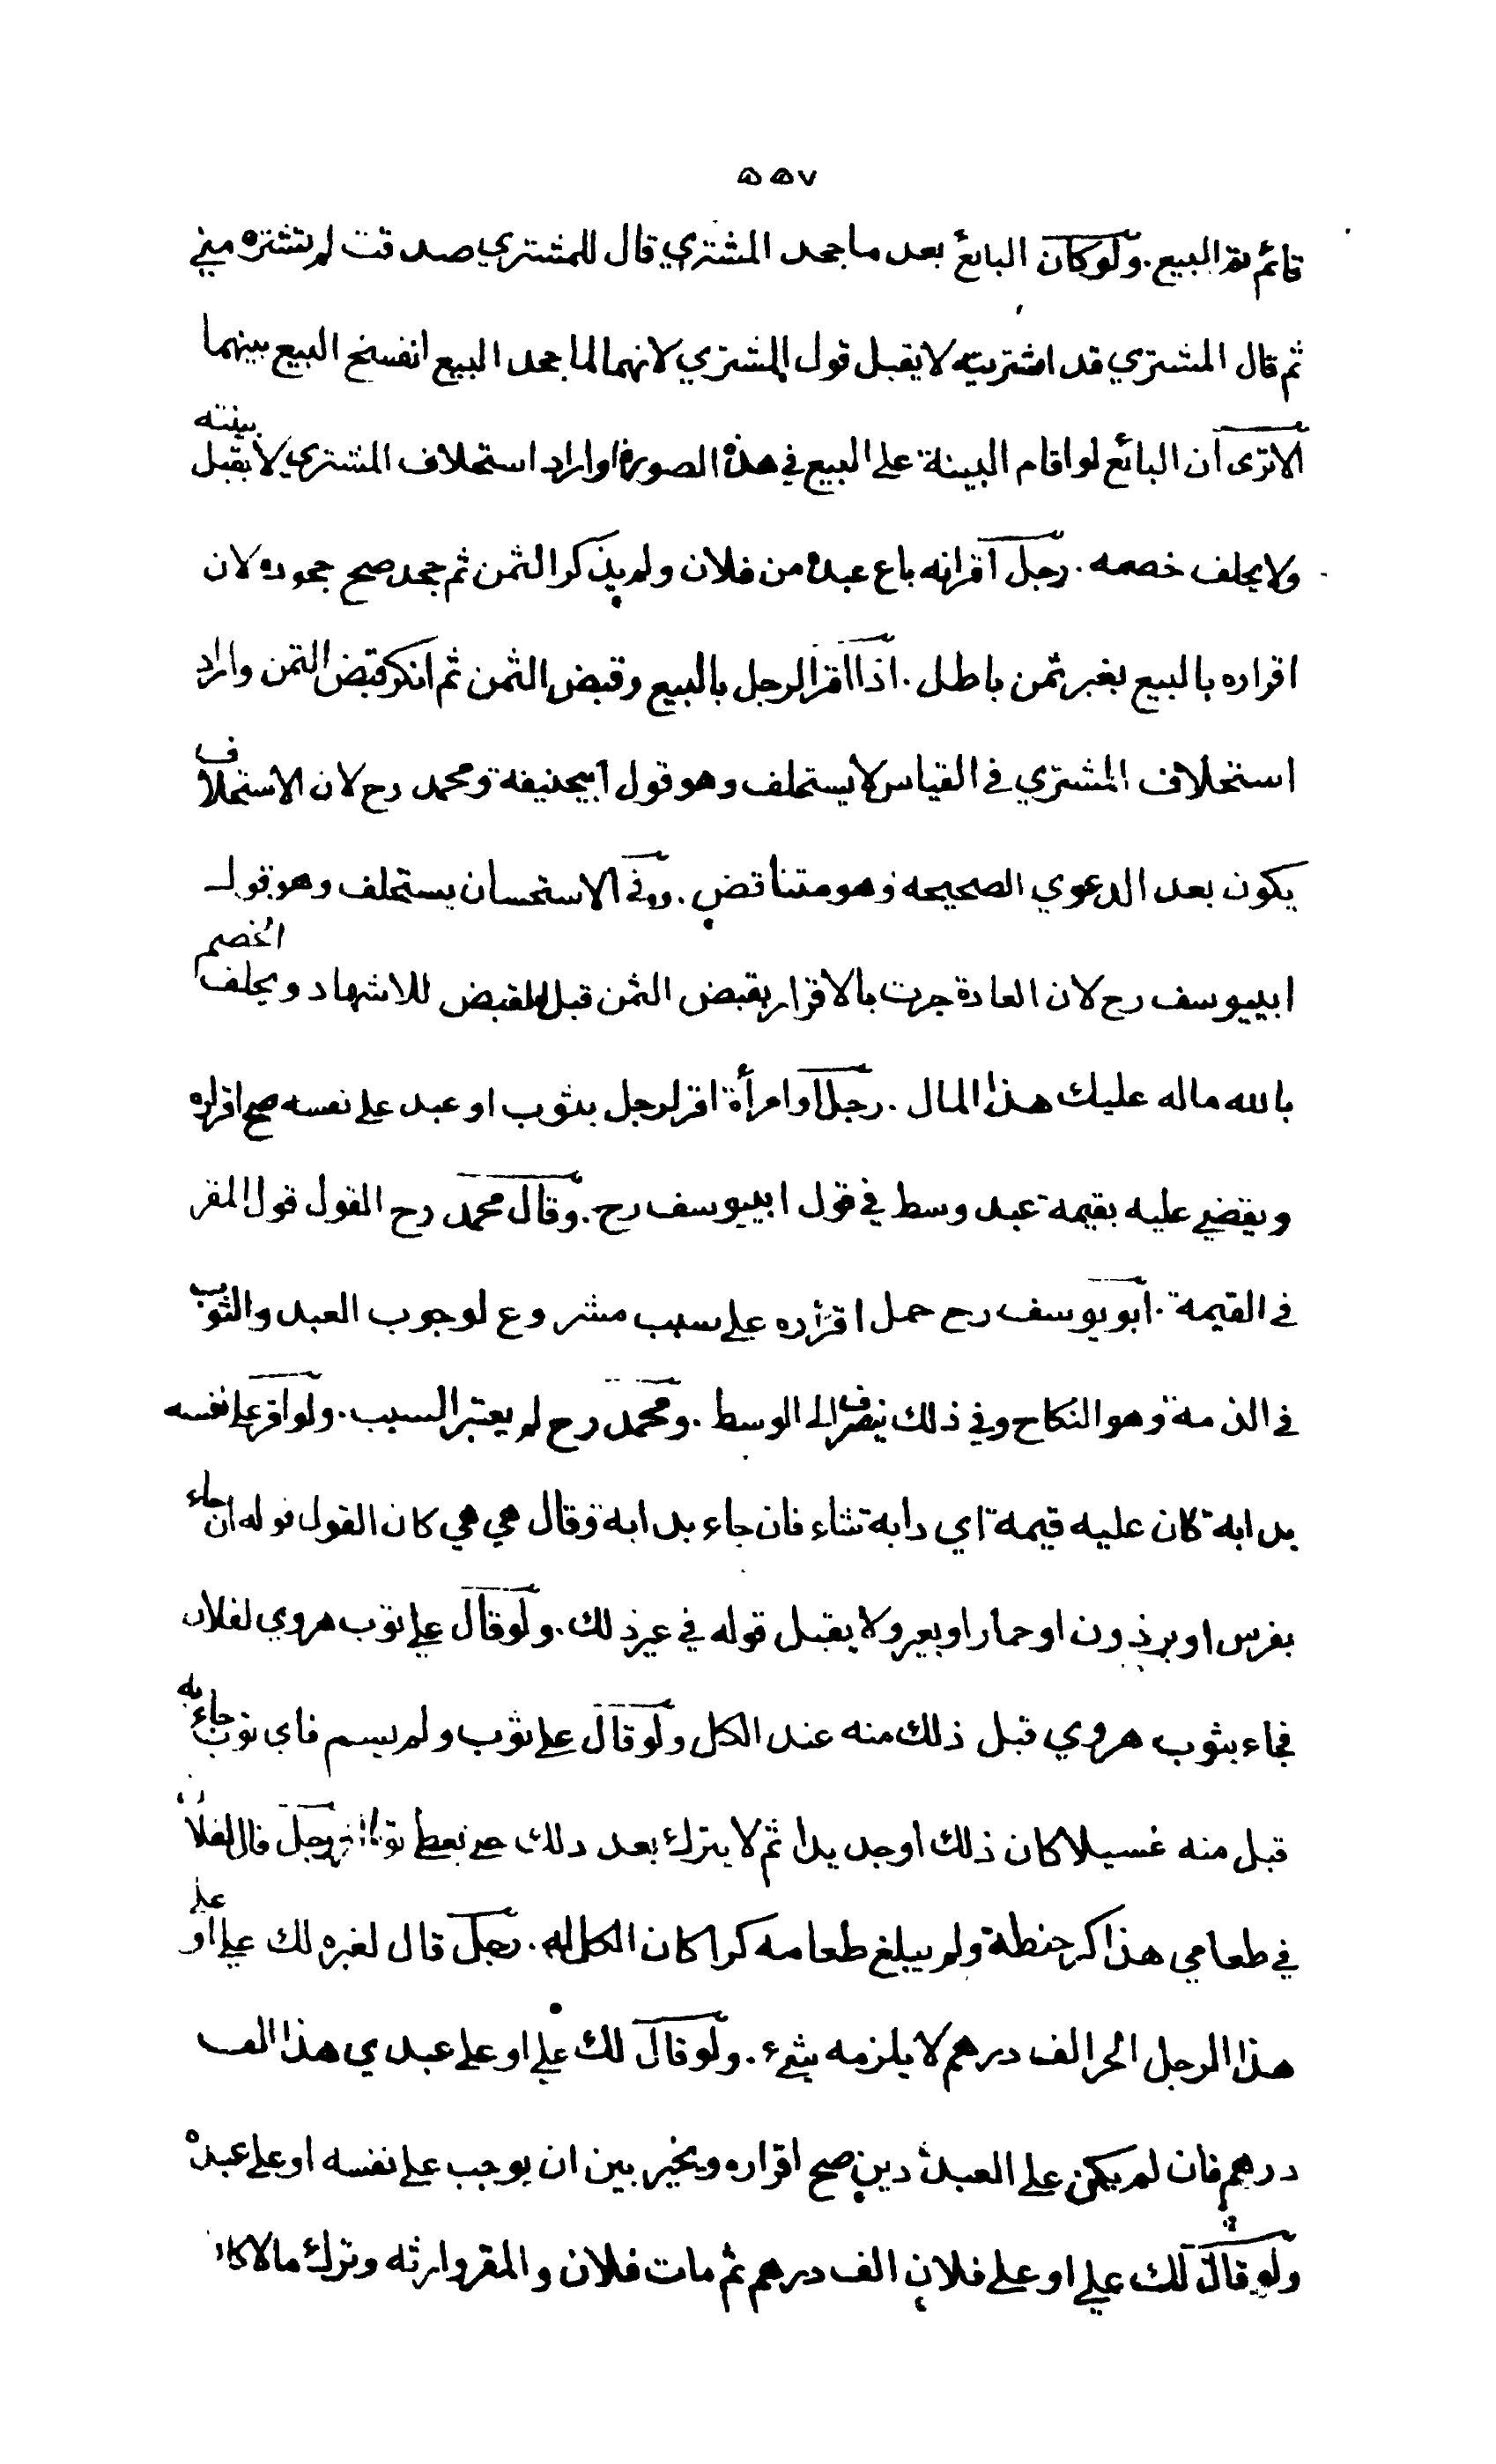 ٥٥٧
قائم تم البيع . ولو كان البائع بعد ما جحد المشتري قال للمشتري صدقت لم تشتره مني
ثم قال المشتري قد اشتريته لا يقبل قول المشتري لانهما لما جحد البيع انفسخ البيع بينهما
الا ترى ان البائع لو اقام البينة على البيع في هذه الصورة او اراد استحلاف المشتري لا يقبل بينته
ولا يحلف خصمه . رجل اقر انه باع عبده من فلان ولم يذكر الثمن ثم جحد صح جحوده لان
اقراره بالبيع بغير ثمن باطل . اذا اقر الرجل بالبيع وقبض الثمن ثم انكر قبض الثمن واراد
استحلاف المشتري في القياس لا يستحلف وهو قول ابيحنيفة ومحمد رح لان الاستحلاف
يكون بعد الدعوي الصحيحه وهو متناقض . وفي الاستحسان يستحلف وهو قول
ابييوسف رح لان العادة جرت بالاقرار بقبض الثمن قبل القبض للاشهاد ويحلف الخصم
بالله ماله عليك هذا المال . رجل او امرأة اقر لرجل بثوب او عبد على نفسه صح اقراره
ويقضي عليه بقيمة عبد وسط في قول ابييوسف رح . وقال محمد رح القول قول المقر
في القيمة . ابو يوسف رح حمل اقراره على سبب مشروع لوجوب العبد والثوب
في الذمة وهو النكاح وفي ذلك ينصرف الى الوسط . ومحمد رح لم يعتبر السبب . ولو اقر على نفسه
بدابة كان عليه قيمة اي دابة شاء فان جاء بدابة وقال هي هي كان القول قوله ان جاء
بفرس او برذون او حمار او بعير ولا يقبل قوله في غير ذلك . ولو قال علي ثوب هروي لفلان
فجاء بثوب هروي قبل ذلك منه عند الكل ولو قال علي ثوب ولم يسم فاي ثوب جاء به
قبل منه غسيلا كان ذلك او جديدا ثم لا يترك بعد ذلك حتى يعطي ثوبا رجل قال لفلان
في طعامي هذا كر حنطة ولم يبلغ طعامه كرا كان الكل له . رجل قال لغيره لك علي او على
هذا الرجل الحر الف درهم لا يلزمه شيء . ولو قال لك علي او على عبدي هذا الف
درهم فان لم يكن على العبد دين صح اقراره ويخير بين ان يوجب على نفسه او على عبده
ولو قال لك علي او على فلان الف درهم ثم مات فلان والمقر وارثه وترك مالا كان